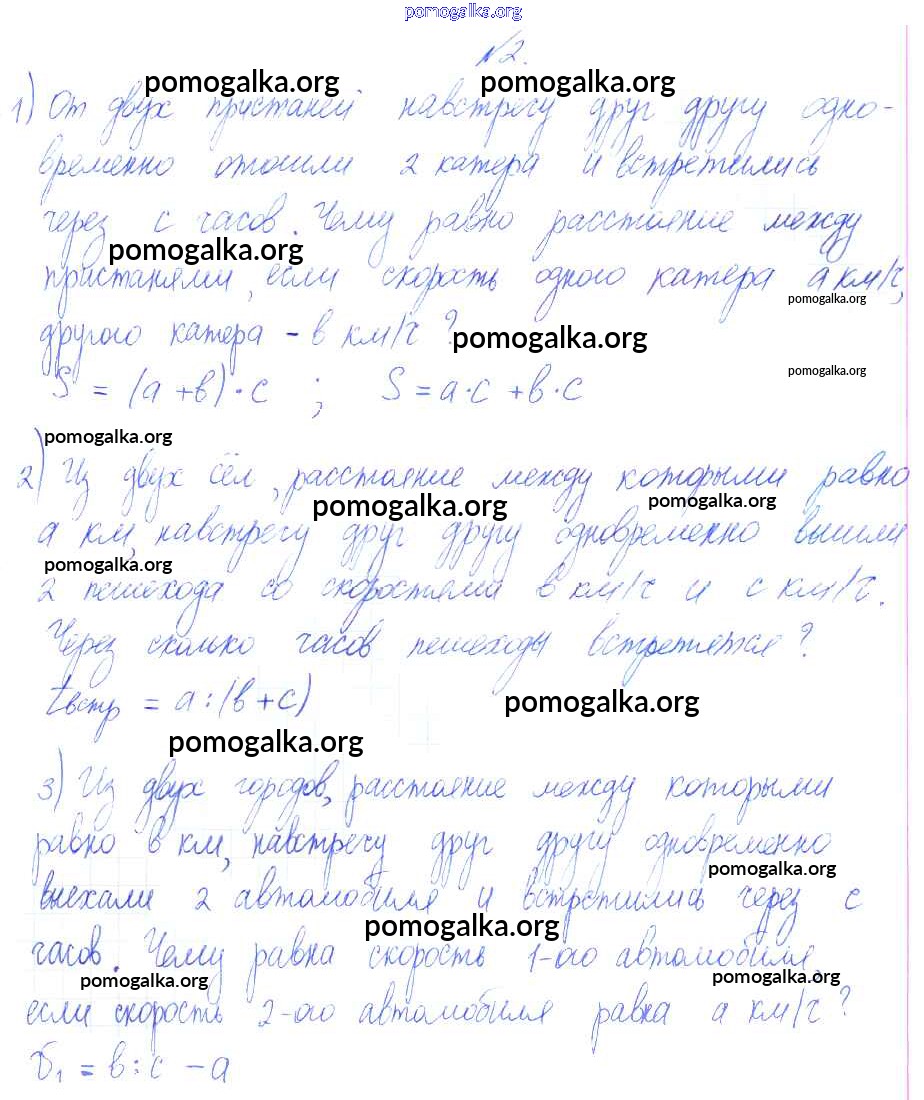 pomogalka.org
№2.
pomogalka.org pomogalka.org
1) От двух пристаней навстречу друг другу одно-
временно отошли 2 катера и встретились
через c часов. Чему равно расстояние между
pomogalka.org
пристанями, если скорость одного катера a км/ч,
pomogalka.org
другого катера - в км/ч?
pomogalka.org
pomogalka.org
S = (a + в) · c ; S = a · c + в · c
pomogalka.org
2) Из двух сёл, расстояние между которыми равно
pomogalka.org pomogalka.org
a км, навстречу друг другу одновременно вышли
pomogalka.org
2 пешехода со скоростями в км/ч и c км/ч.
Через сколько часов пешеходы встретятся?
tвстр = a : (в + c)
pomogalka.org
pomogalka.org
3) Из двух городов, расстояние между которыми
равно в км, навстречу друг другу одновременно
pomogalka.org
выехали 2 автомобиля и встретились через c
pomogalka.org
часов. Чему равна скорость 1-ого автомобиля,
pomogalka.org pomogalka.org
если скорость 2-ого автомобиля равна a км/ч?
V1 = в : c - a